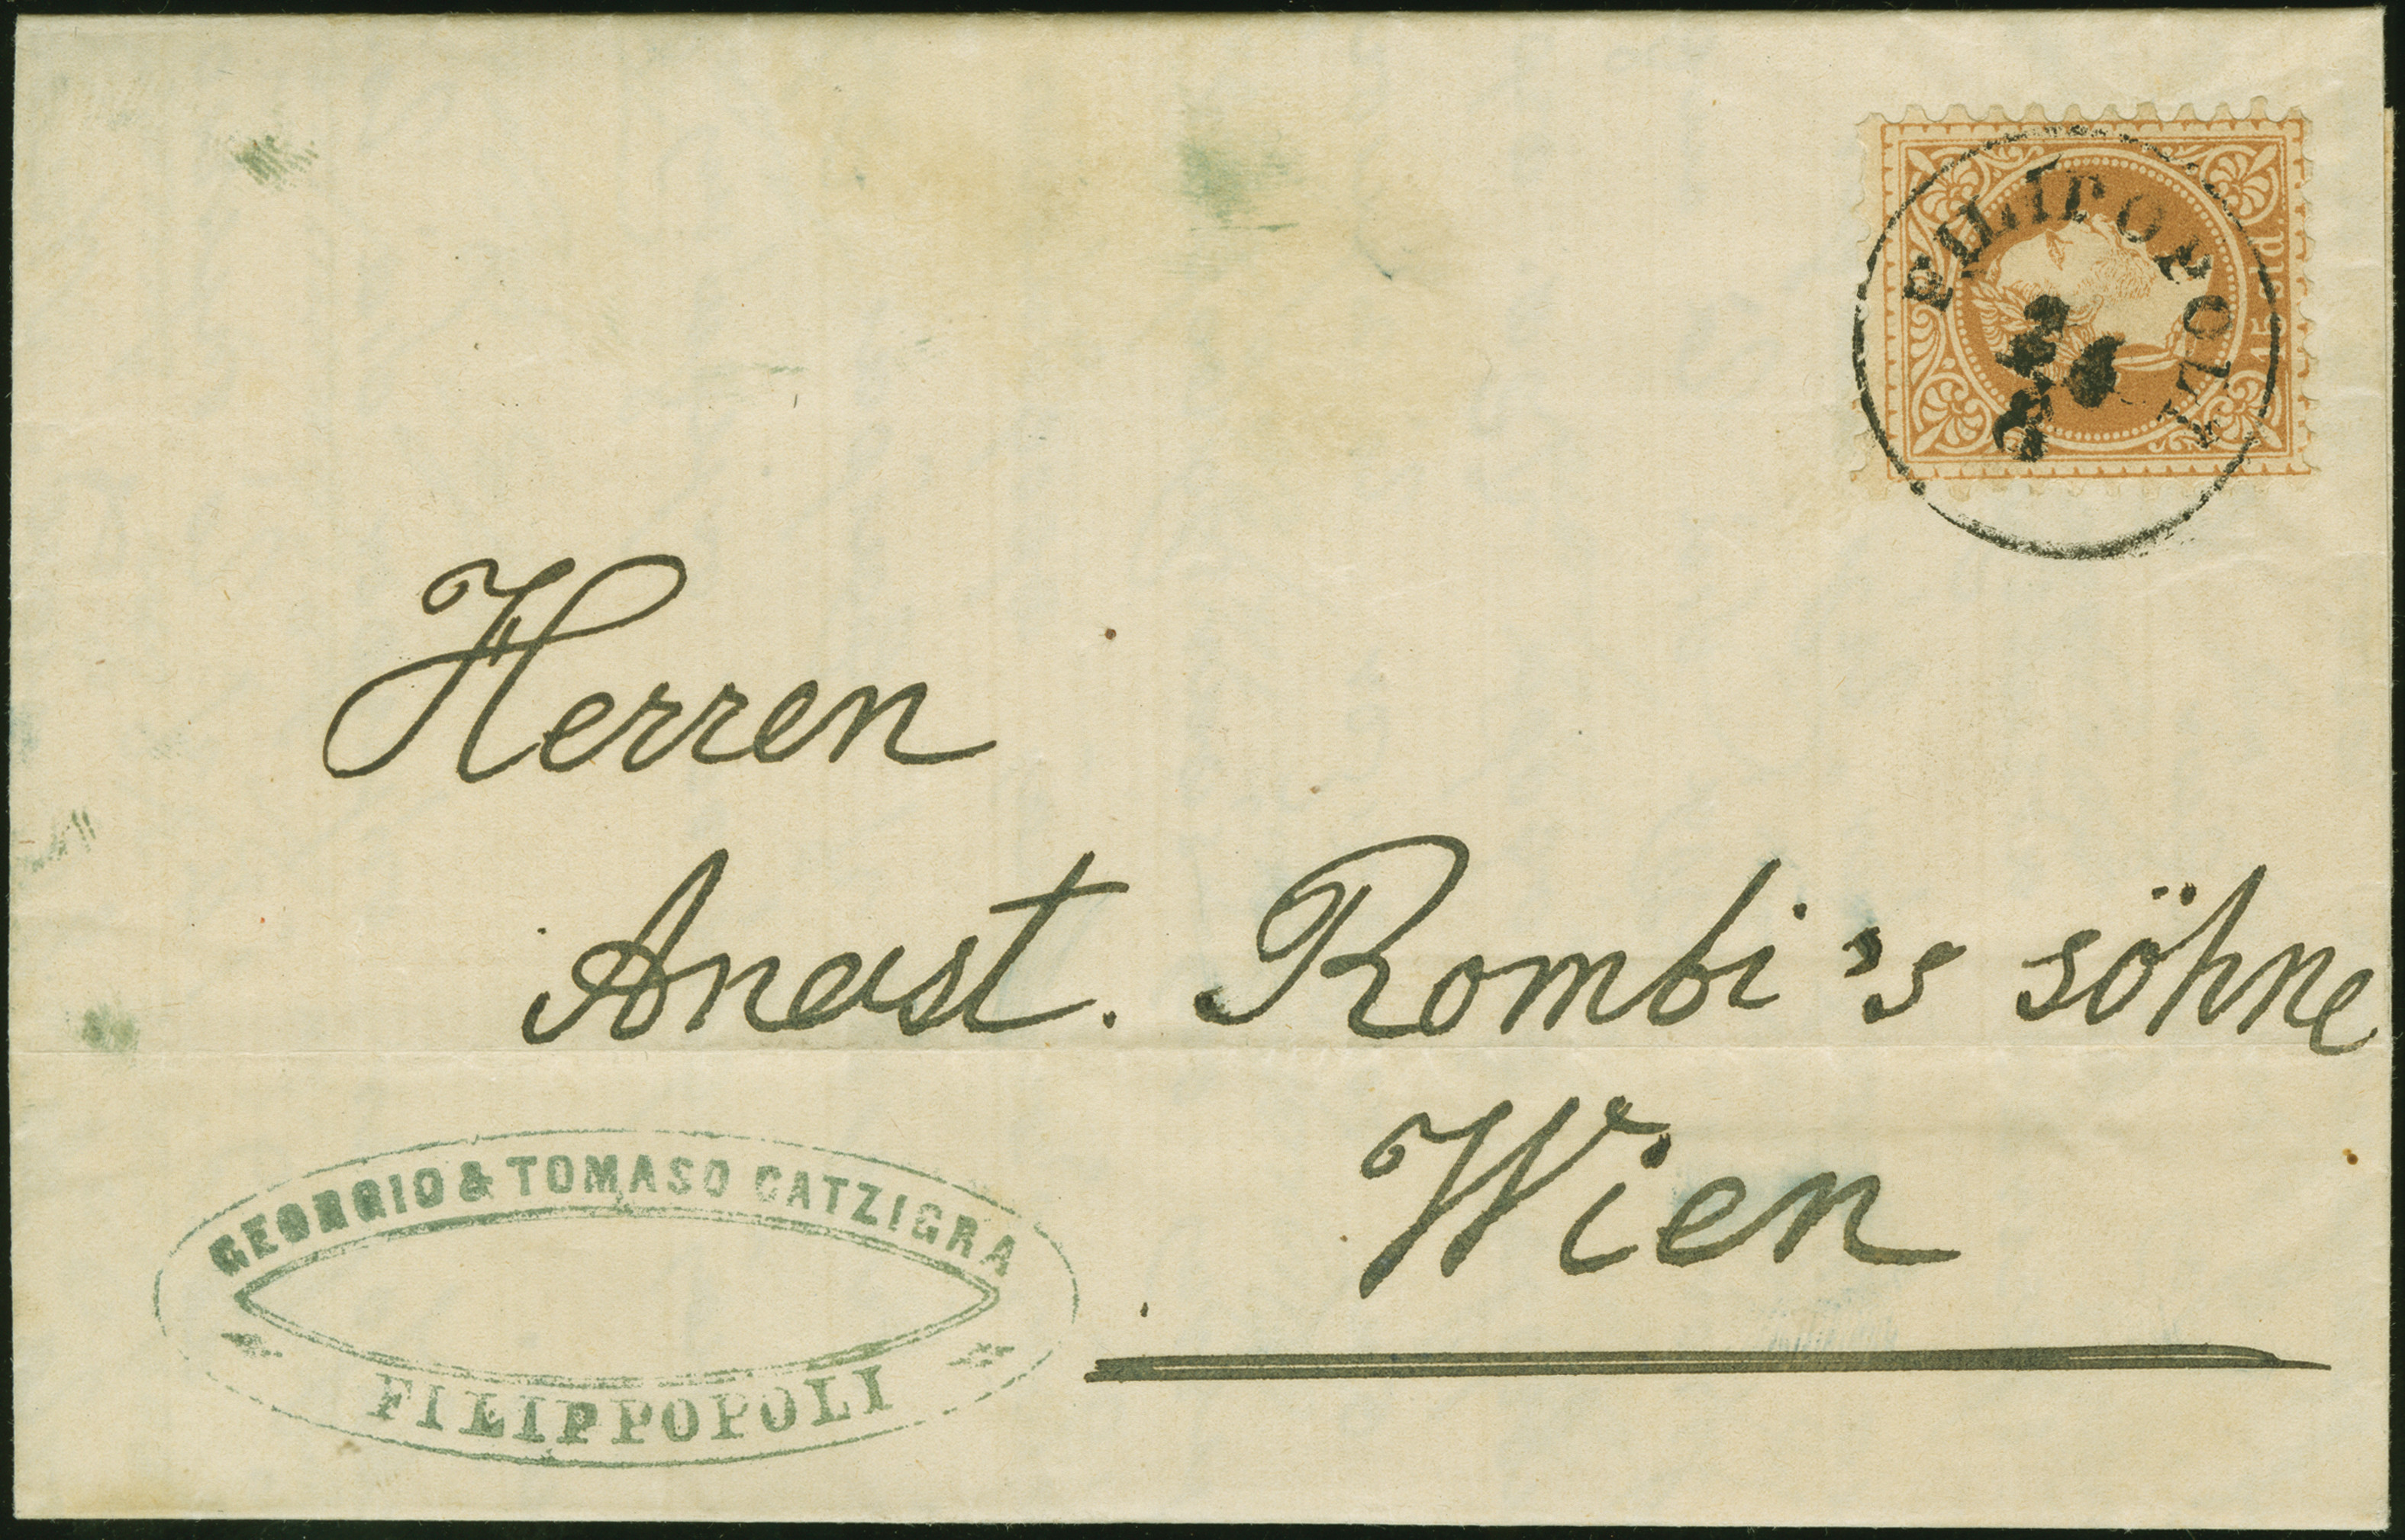 15 sld.
FILIPOPOLI
Herren
Anast. Rombi's söhne
Wien
GEORGIO & TOMASO CATZIGRA
FILIPPOPOLI